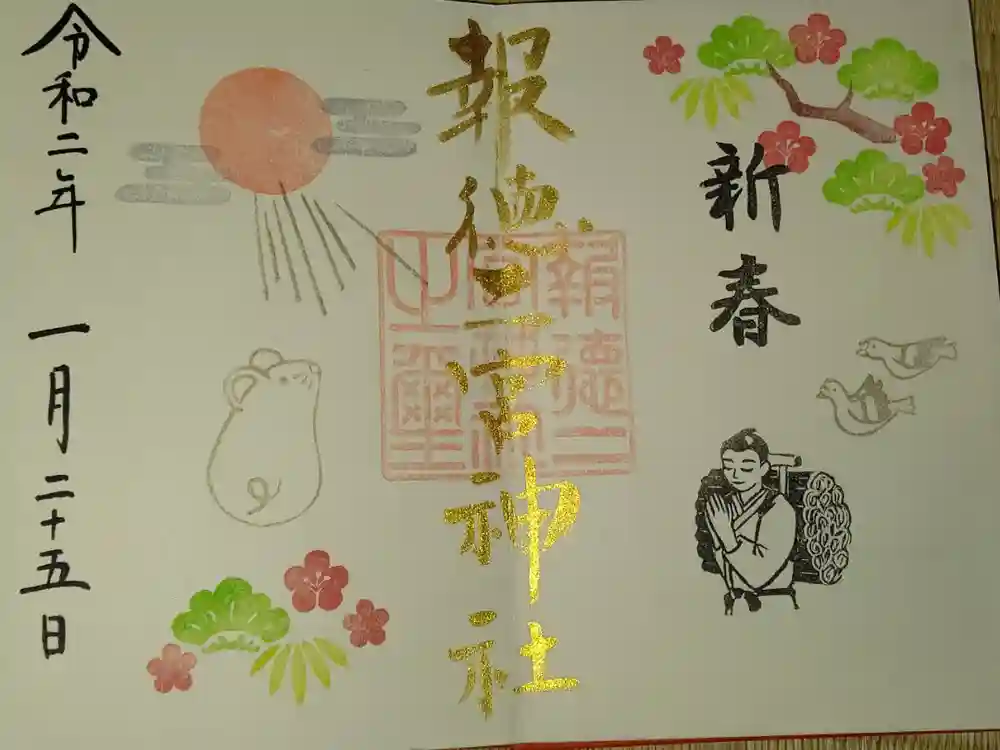 新春
報徳二宮神社
報徳二
宮神社
之璽
令和二年 一月二十五日